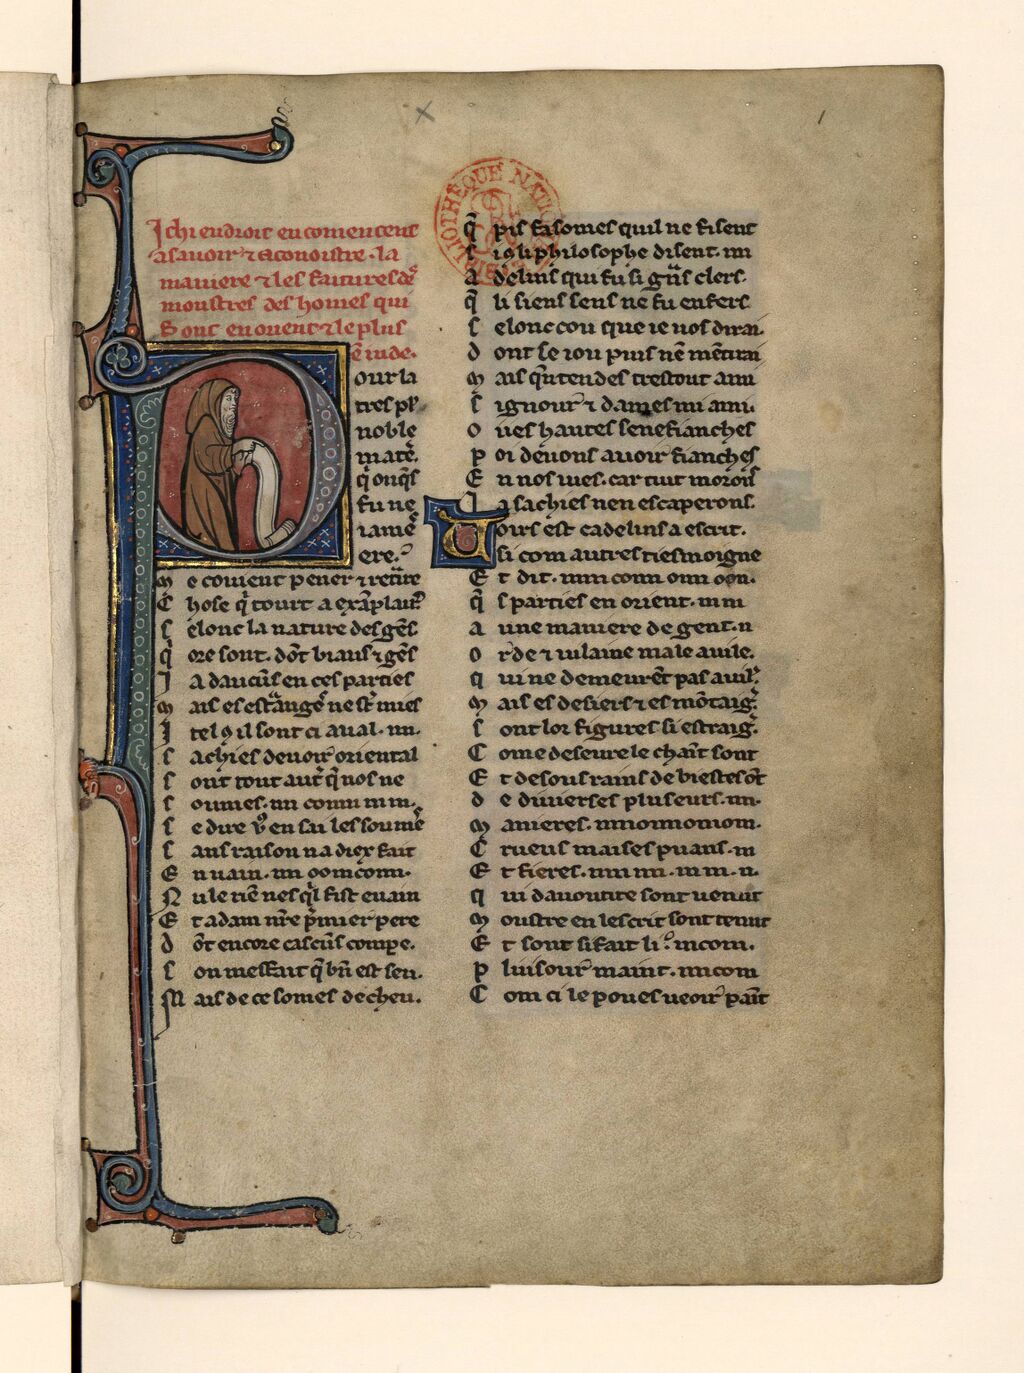 Ichi endroit en comencent
a savoir ⁊ a conoistre . la
maniere ⁊ les faitures des
moustres des homes qui
Sont en orient ⁊ le plus
en inde.
Pour la
tres pl'
noble
mate.
q' onq's
fu ne
iamē
ere.
M e couient pener ⁊ retrere
C hose q' tourt a exāplaire
S elonc la nature des gēs
Q' ore sont. dōt biaus ⁊ gēs
I a daucūs en ces parties
M ais es estāge ne st' mies
I tel q' il sont ci aual. nn.
S achies de uoir oriental
S ont tout autr q' nos ne
S oumes. nn conn mm.
S e dire v' en sai les soume
S ans raison na diex fait
E n uain. nn oom conn.
N ule riē nes q'l fist en uain
E t adam nr̄e p'mier pere
D ōt encore cascūs compe.
S on meffait q' bn̄ est seu.
M ais de ce somes decheu.
Q' pis faisomes quil ne fisent
S i q' li philosophe disent. nn
A delins qui fu si grās clers.
Q' li siens sens ne fu enfers
S elonc cou que ie uos dirai.
D ont se iou puis nē mētirai
M ais q' ntendes trestout ami
S ignour ⁊ dames mi ami.
O ues hautes senefianches
P oi deuons auoir fianches
E n nos uies. car tuit morōs
I a sachies nen escaperons.
Voirs est cadelins a escrit.
si com autres tiesmoigne
E t dit. mm conn onn oon.
Q' s parties en orient. mm
A une maniere de gent. n
O rde ⁊ uilaine male ⁊ uile.
Q ui ne demeurēt pas a uile.
M ais es desiers ⁊ es mōtaig.
S ont lor figures si estraig.
C ome deseure le chaīt sont
E t desous rains de biestes ōt
D e diuerses pluseurs. nn.
M anieres. nmonnoniom.
C rueus maises puans. m
E t fieres. nn nn. m m. n.
Q ui dauoutire sont uenut
M oustre en lescrit sont tenut
E t sont si fait li. mcom.
P luisour maint. nncom
C om ci le poues ueoir paīt
BIBLIOTHEQUE NATI
1